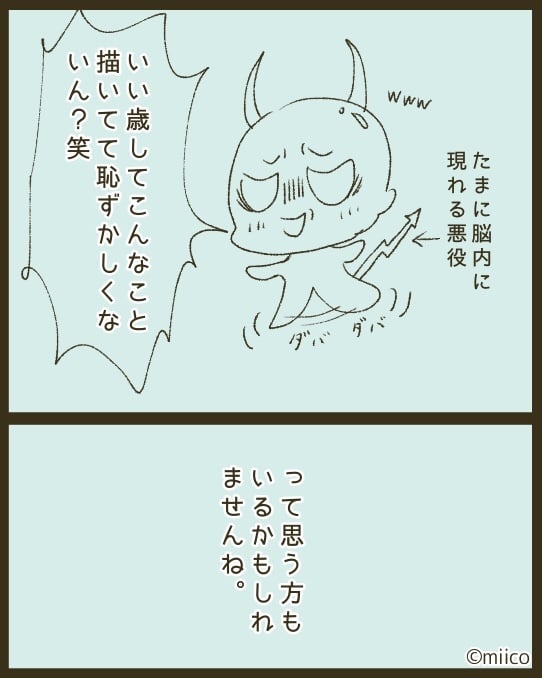 いい歳してこんなこと
描いてて恥ずかしくな
いん？笑
www
たまに脳内に
現れる悪役
ダバ ダバ
って思う方も
いるかもしれ
ませんね。
©miico